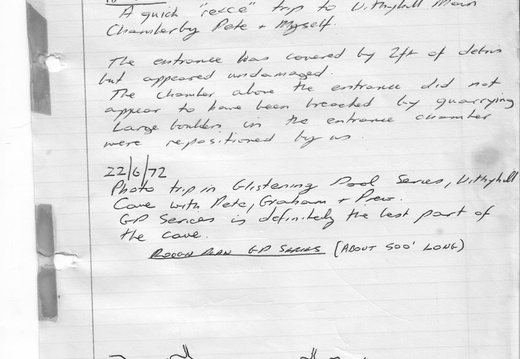 A quick "recce" trip to Withyhill Main
Chamber by Pete + Myself.
The entrance was covered by 2ft of debris
but appeared undamaged.
The chamber above the entrance did not
appear to have been breached by quarrying
Large boulders in the entrance chamber
were repositioned by us
22/6/72
Photo trip in Glistening Pool Series, Withyhill
Cave with Pete, Graham + Prew.
GP Series is definitely the best part of
the cave.
ROUGH PLAN GP SERIES (ABOUT 500' LONG)